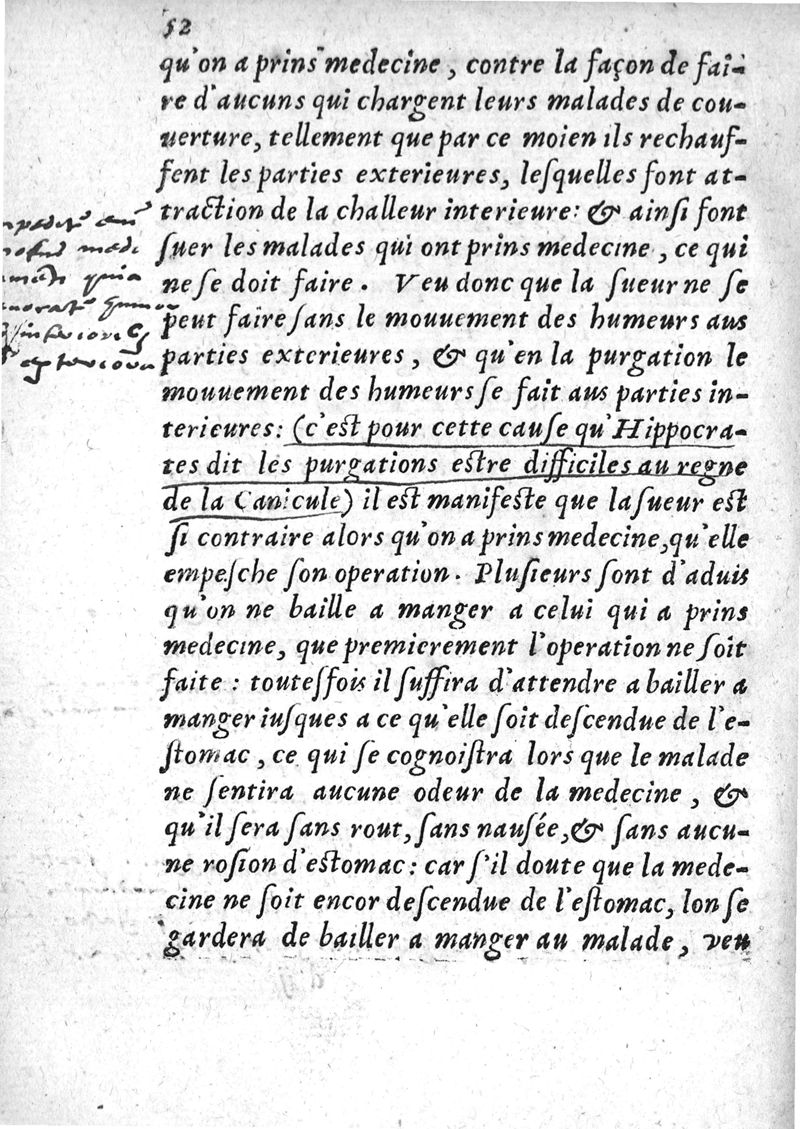 52
qu'on a prins medecine, contre la façon de fai-
re d'aucuns qui chargent leurs malades de cou-
uerture, tellement que par ce moien ils rechauf-
fent les parties exterieures, leſquelles font at-
traction de la challeur interieure: & ainſi font
ſuer les malades qui ont prins medecine, ce qui
ne ſe doit faire. Veu donc que la ſueur ne ſe
peut faire ſans le mouuement des humeurs aus
parties exterieures, & qu'en la purgation le
mouuement des humeurs ſe fait aus parties in-
terieures: (c'eſt pour cette cauſe qu'Hippocra-
tes dit les purgations eſtre difficiles au regne
de la Canicule) il eſt manifeſte que la ſueur eſt
ſi contraire alors qu'on a prins medecine, qu'elle
empeſche ſon operation. Pluſieurs ſont d'aduis
qu'on ne baille a manger a celui qui a prins
medecine, que premierement l'operation ne ſoit
faite: touteſfois il ſuffira d'attendre a bailler a
manger iuſques a ce qu'elle ſoit deſcendue de l'e-
ſtomac, ce qui ſe cognoiſtra lors que le malade
ne ſentira aucune odeur de la medecine, &
qu'il ſera ſans rout, ſans nauſée, & ſans aucu-
ne roſion d'eſtomac: car ſ'il doute que la mede-
cine ne ſoit encor deſcendue de l'eſtomac, lon ſe
gardera de bailler a manger au malade, veu
quia